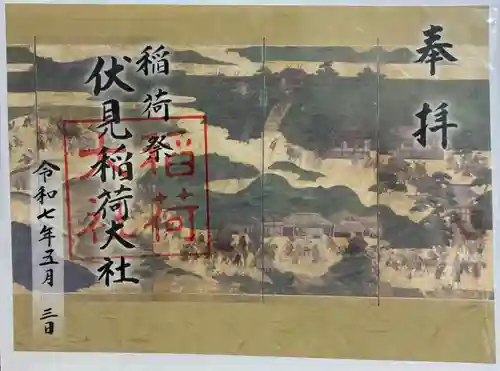 奉拝
稲荷祭
伏見稲荷大社
令和七年五月 三日
稲荷